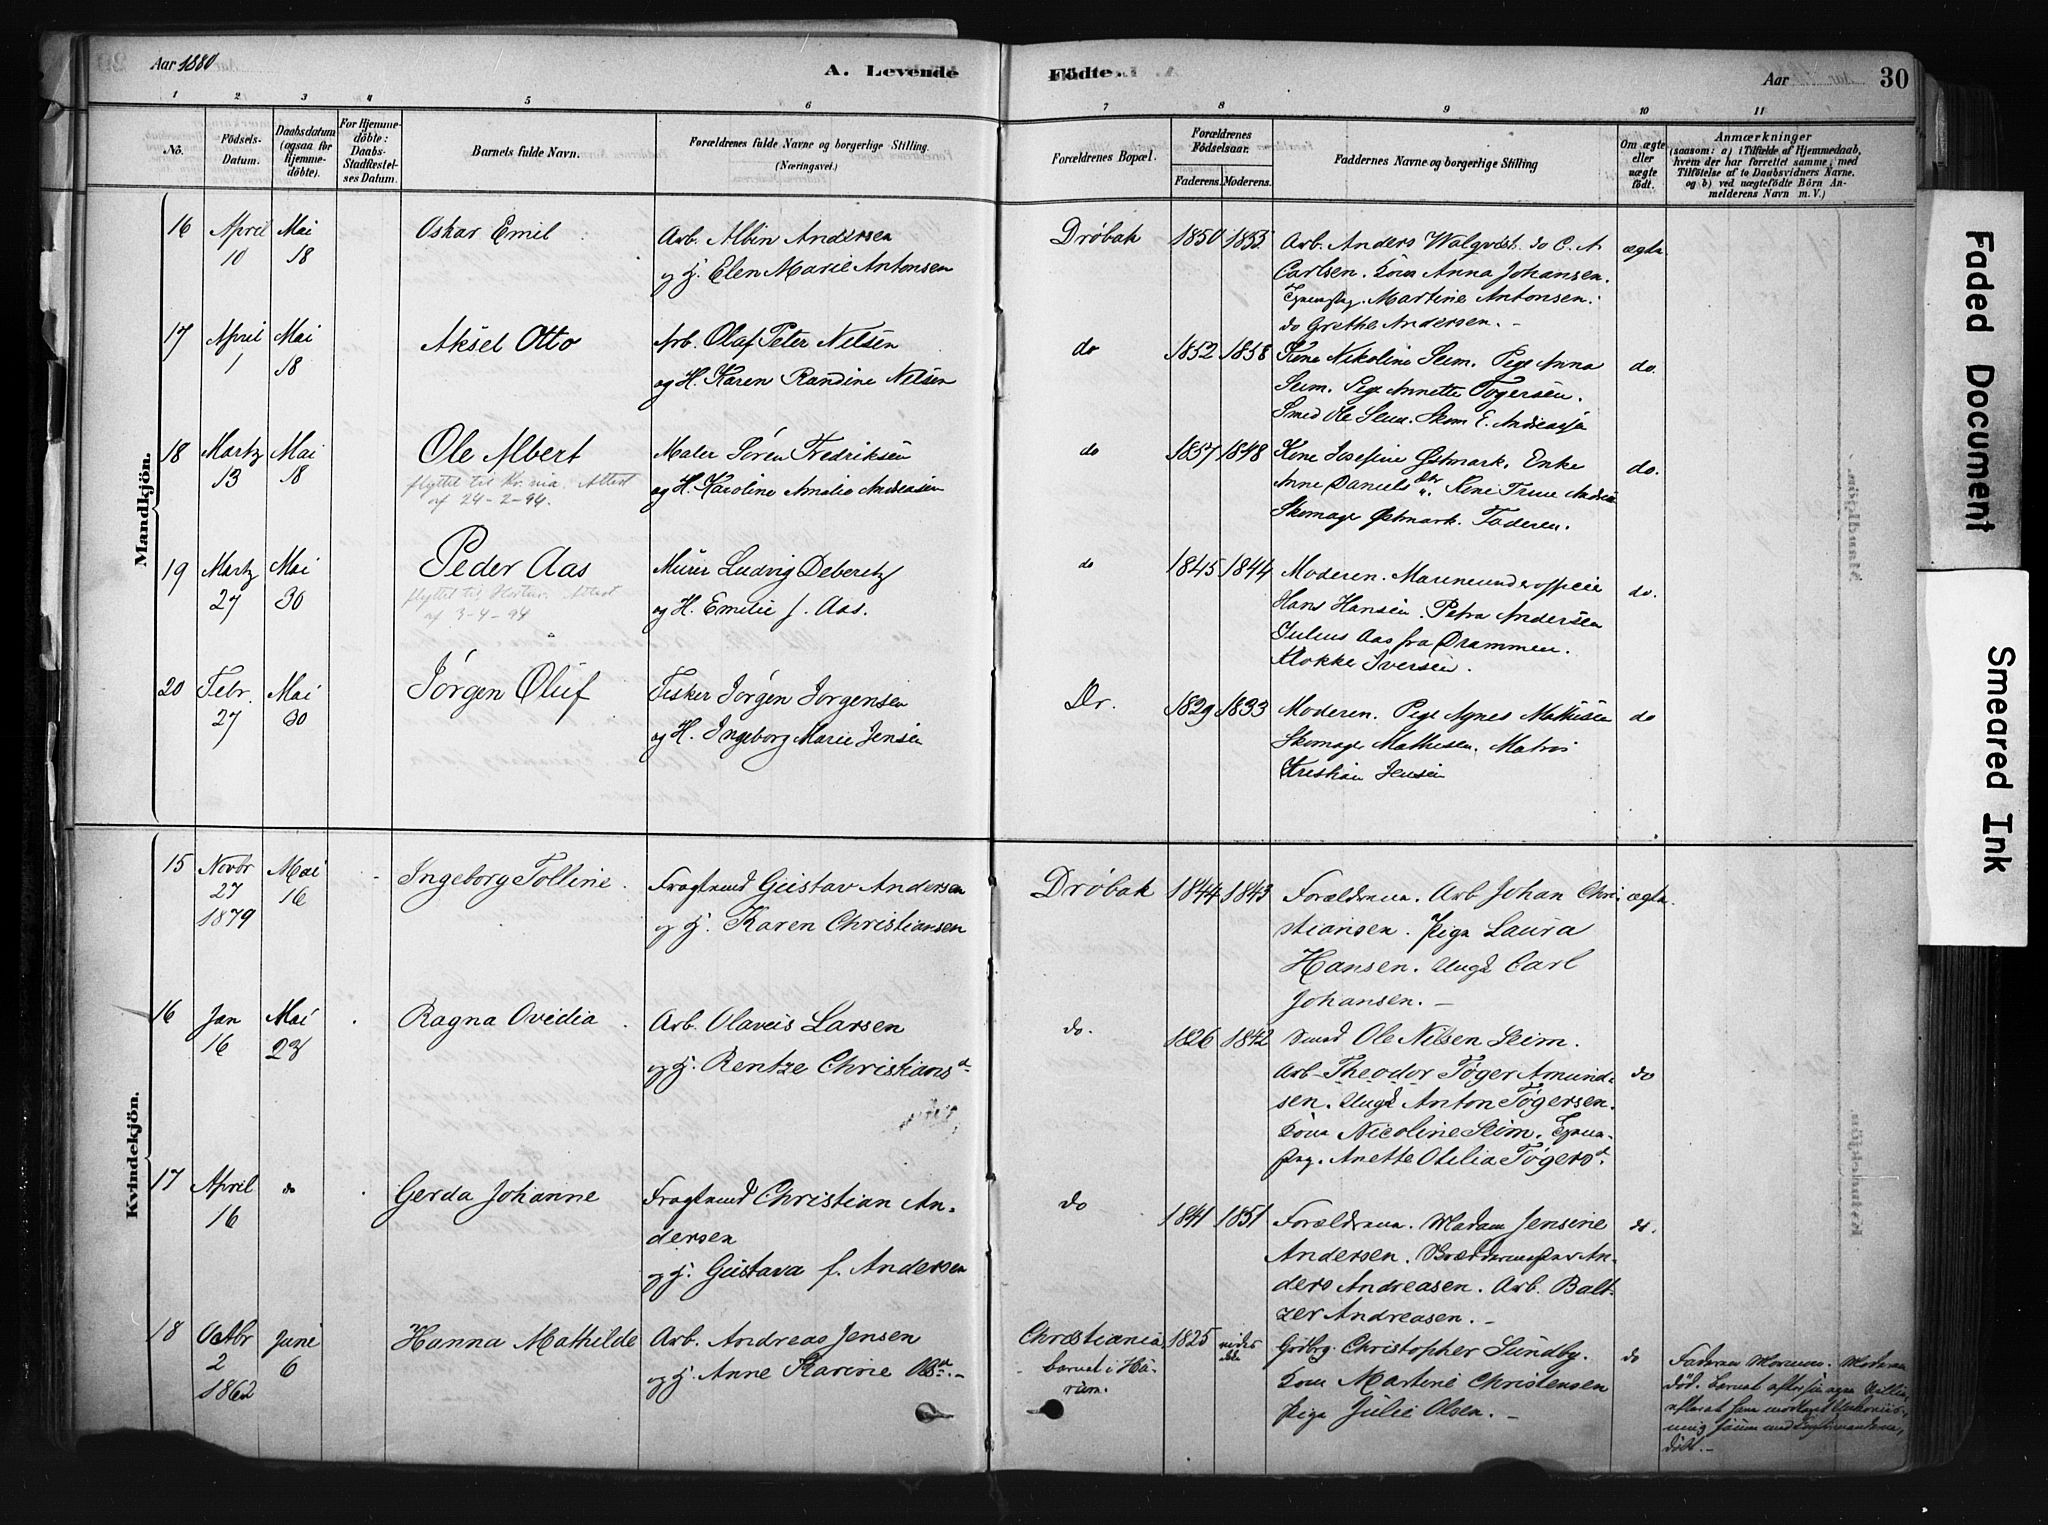 Aar 1880
A. Levende Födte.
Aar 30
1 2 3 4 5 6 7 8 9 10 11
No.
Födsels-
Datum.
Daabsdatum
(ogsaa for
Hjemme-
döbte).
For Hjemme-
döbte:
Daabs-
Stadfæstel-
ses Datum.
Barnets fulde Navn.
Forældrenes fulde Navne og borgerlige Stilling.
(Næringsvei.)
Forældrenes Bopæl.
Forældrenes
Födselsaar.
Faderens. Moderens.
Faddernes Navne og borgerlige Stilling
Om ægte
eller
uægte
födt.
Anmærkninger
(saasom: a) i Tilfælde af Hjemmedaab,
hvem der har forrettet samme, med
Tilföielse af to Daabsvidners Navne.
og b) ved uægtefödte Börn An-
melderens Navn m. V.)
Mandkjön.
16 April 10 Mai 18
Oskar Emil
Arb. Albin Andersen
og H. Elen Marie Antonsen
Drøbak 1850 1855
Arb. Anders Walqvist. do C. A.
Carlsen. Kone Anna Johansen.
Martine Antonsen.
do Grethe Andersen. –
ægte
17 April 1 Mai 18
Aksel Otto
Arb. Olaf Peter Nilsen
og H. Karen Randine Nilsen
do 1852 1858
Kone Nikoline Seim. Pige Anna
Seim. Pige Annette Tøgersen.
Smed Ole Seim. Skom E.
do.
18 Martz 13 Mai 18
Ole Albert
flyttet til Kr.nia. Attest
af 24-2-94.
Maler Søren Fredriksen
og H. Karoline Amalie Andreasen
do 1857 1848
Kone Josefine Østmark. Enke
Anne Daniels Kone Trine
Skomager Østmark. Faderen.
do.
19 Martz 27 Mai 30
Peder Aas
flyttet til Horten. Attest
af 3-4-94
Murer Ludvig Deberitz
og H. Emilie f. Aas.
do 1845 1844
Moderen. Marineunderofficer
Hans Hansen. Petra Andersen
Julius Aas fra Drammen.
Klokker Iversen.
do.
20 Febr. 27 Mai 30
Jørgen Oluf
Fisker Jørgen Jørgensen
og H. Ingeborg Marie Jensen
Dr. 1829 1833
Moderen. Pige Agnes Mathisen
Skomager Mathisen. Matros
Kristian Jensen
do
Kvindekjön.
15 Novbr 27 1879 Mai 16
Ingeborg Tolline.
Fragtmand Gustav Andersen
og H. Karen Christiansen
Drøbak 1844 1843
Forældrene. Arb. Johan Chri-
stiansen. Pige Laura
Hansen. Ungk Carl
Johansen. –
ægte.
16 Jan 16 Mai 23
Ragna Ovidia
Arb. Olaveis Larsen
og H. Rentze Christiansd
do. 1826 1842
Smed Ole Nilsen Seim.
Arb. Theodor Tøger Amund-
sen. Ungk Anton Tøgersen.
Kone Nicoline Seim.
Anette Otilia Tøgersd.
do
17 April 16 do
Gerda Johanne
Fragtmd Christian An-
dersen
og H. Gustava f. Andersen
do 1841 1851
Forældrene. Madam Jensine
Andersen. An-
ders Andreasen. Arb. Balt-
zer Andreasen. –
do.
18 Octbr 2 1862 Juni 6
Hanna Mathilde
Arb. Andreas Jensen
og H. Anne Karine
Christiania
barnet i Hu-
rum.
1825
Christopher Sundby.
Kone Martine Christensen
Pige Julie Olsen. –
do
Faderen Mormon. Moderen
død. barnet efter sin egen Villie,
efterat have modtaget Underviis-
ning
døbt. –
Faded Document
Smeared Ink